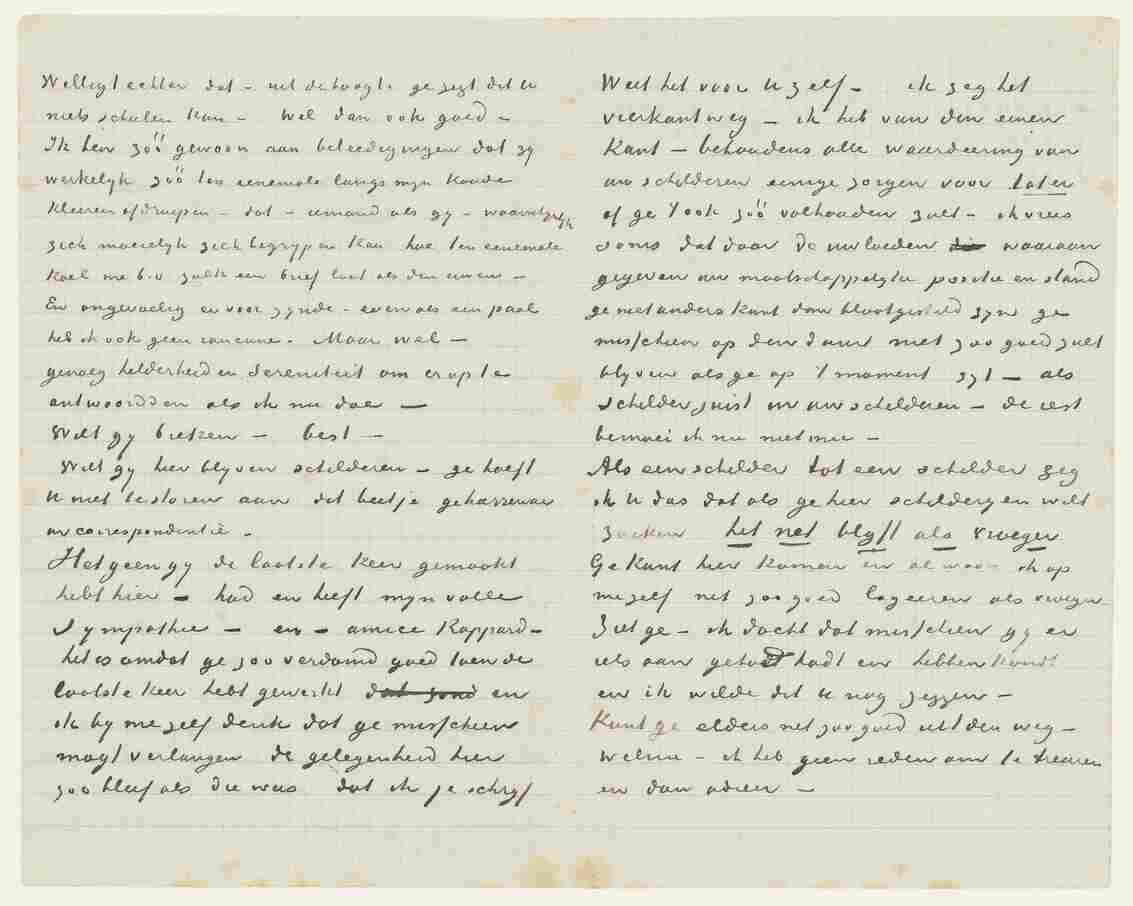 Welligt echter dat – uit de hoogte ge zegt dit u
niets schelen kan – wel dan ook goed –
Ik ben zóó gewoon aan beleedigingen dat zy
werkelyk zóó ten eenemale langs myn koude
kleeren afdruipen – dat – iemand als gy – waarschynlyk
zich moeielyk zich begrypen kan hoe ten eenemale
koel me b.v. zulk een brief laat als den uwen –
En ongevoelig er voor zynde – even als een paal
heb ik ook geen rancune. Maar wel –
genoeg helderheid en sereniteit om er op te
antwoordden als ik nu doe –
Wilt gy breken – best –
Wilt gy hier blyven schilderen – ge hoeft
u niet te storen aan dit beetje geharrewar
in correspondentie.
Hetgeen gy de laatste keer gemaakt
hebt hier – had en heeft myn volle
sympathie – en – amice Rappard –
het is omdat ge zoo verdomd goed toen de
laatste keer hebt gewerkt dat zond en
ik by me zelf denk dat ge misschien
mogt verlangen de gelegenheid hier
zoo bleef als die was dat ik je schryf
Weet het voor u zelf – ik zeg het
vierkantweg – ik heb van den eenen
kant – behoudens alle waardeering van
uw schilderen eenige zorgen voor later
of ge 't ook zóó volhouden zult – ik vrees
soms dat door de invloeden die waaraan
gegeven uw maatschappelyke positie en stand
ge niet anders kunt dan blootgesteld zyn ge
misschien op den duur niet zoo goed zult
blyven als ge op 't moment zyt – als
schilder juist in uw schilderen – de rest
bemoei ik me niet mee –
Als een schilder tot een schilder zeg
ik u dus dat als ge hier schilderyen wilt
zoeken het net blyft als vroeger
Ge kunt hier komen en al woon ik op
mezelf net zoo goed logeeren als vroeger
Ziet ge – ik dacht dat misschien gy er
iets aan gehad hadt en hebben kondt
en ik wilde dit u nog zeggen –
Kunt ge elders net zoo goed uit den weg –
welnu – ik heb geen reden om te treuren
en dan adieu –